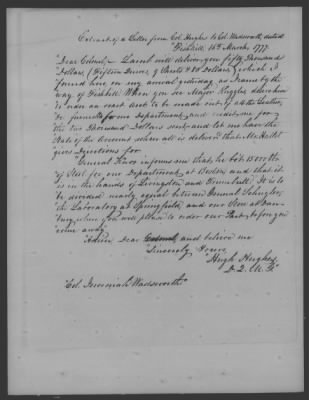 Extract of a Letter from Col. Hughes to Col. Wadsworth, dated
Fishkill 16th March, 1777.
"Dear Colonel,— Laml will deliver you fifty Thousand
Dollars, & Fifteen Drums, which I
found here on my arrival yesterday, as Drums by the
way of Fishkill. When you see Major Ruggles,
is now an exact acct to be made out of all the
to our Department, and credit me for
the two Thousand Dollars sent and let me have the
Rate of the Account when all is delivered that Mr. Hallet
gives Directions for.
General Knox informs me that he bot. 15000 lbs
of Steel for our Department, at Boston, and that it
is in the hands of Livingston and Trumbull. It is to
be divided nearly equal between General Schuyler,
the Laboratory at Springfield, and our Store at Dan-
bury, when you will please to order our Part, before you
come away.
"Adieu Dear Colonel, and believe me
"Sincerely Yours,
"Hugh Hughes,
D. Q. M. G."
"Col. Jeremiah Wadsworth"